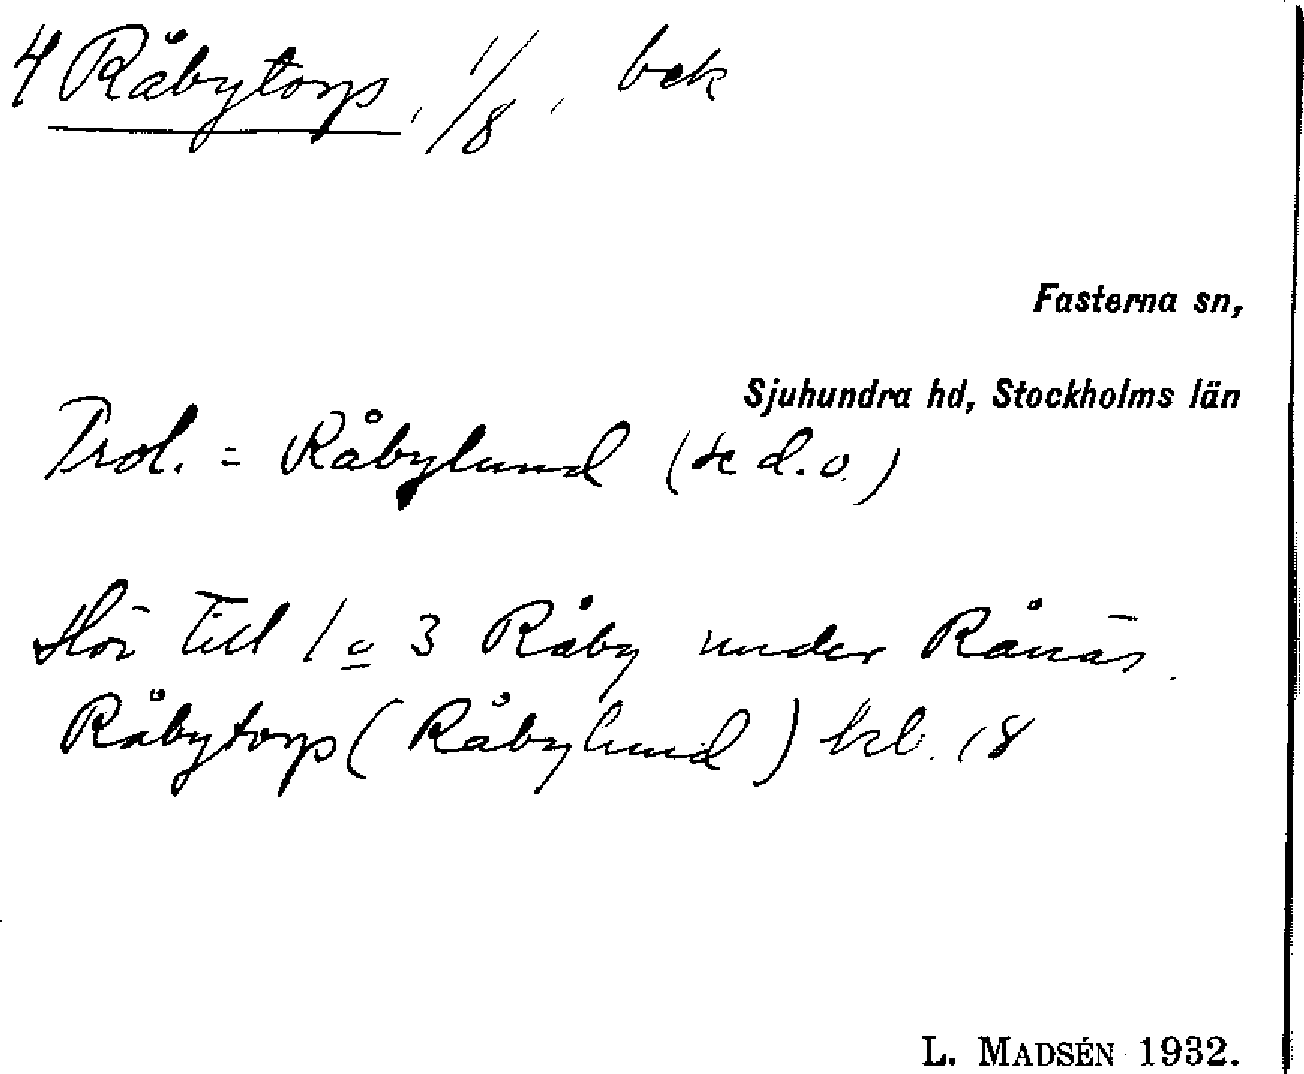 4 Råbytorp, 1/8, bek
Fasterna sn,
Sjuhundra hd, Stockholms län
Trol. = Råbylund (se d.o.)
Hör till 1 o 3 Råby under Rånäs.
Råbytorp (Råbylund) kl. 18
L. MADSÉN 1932.